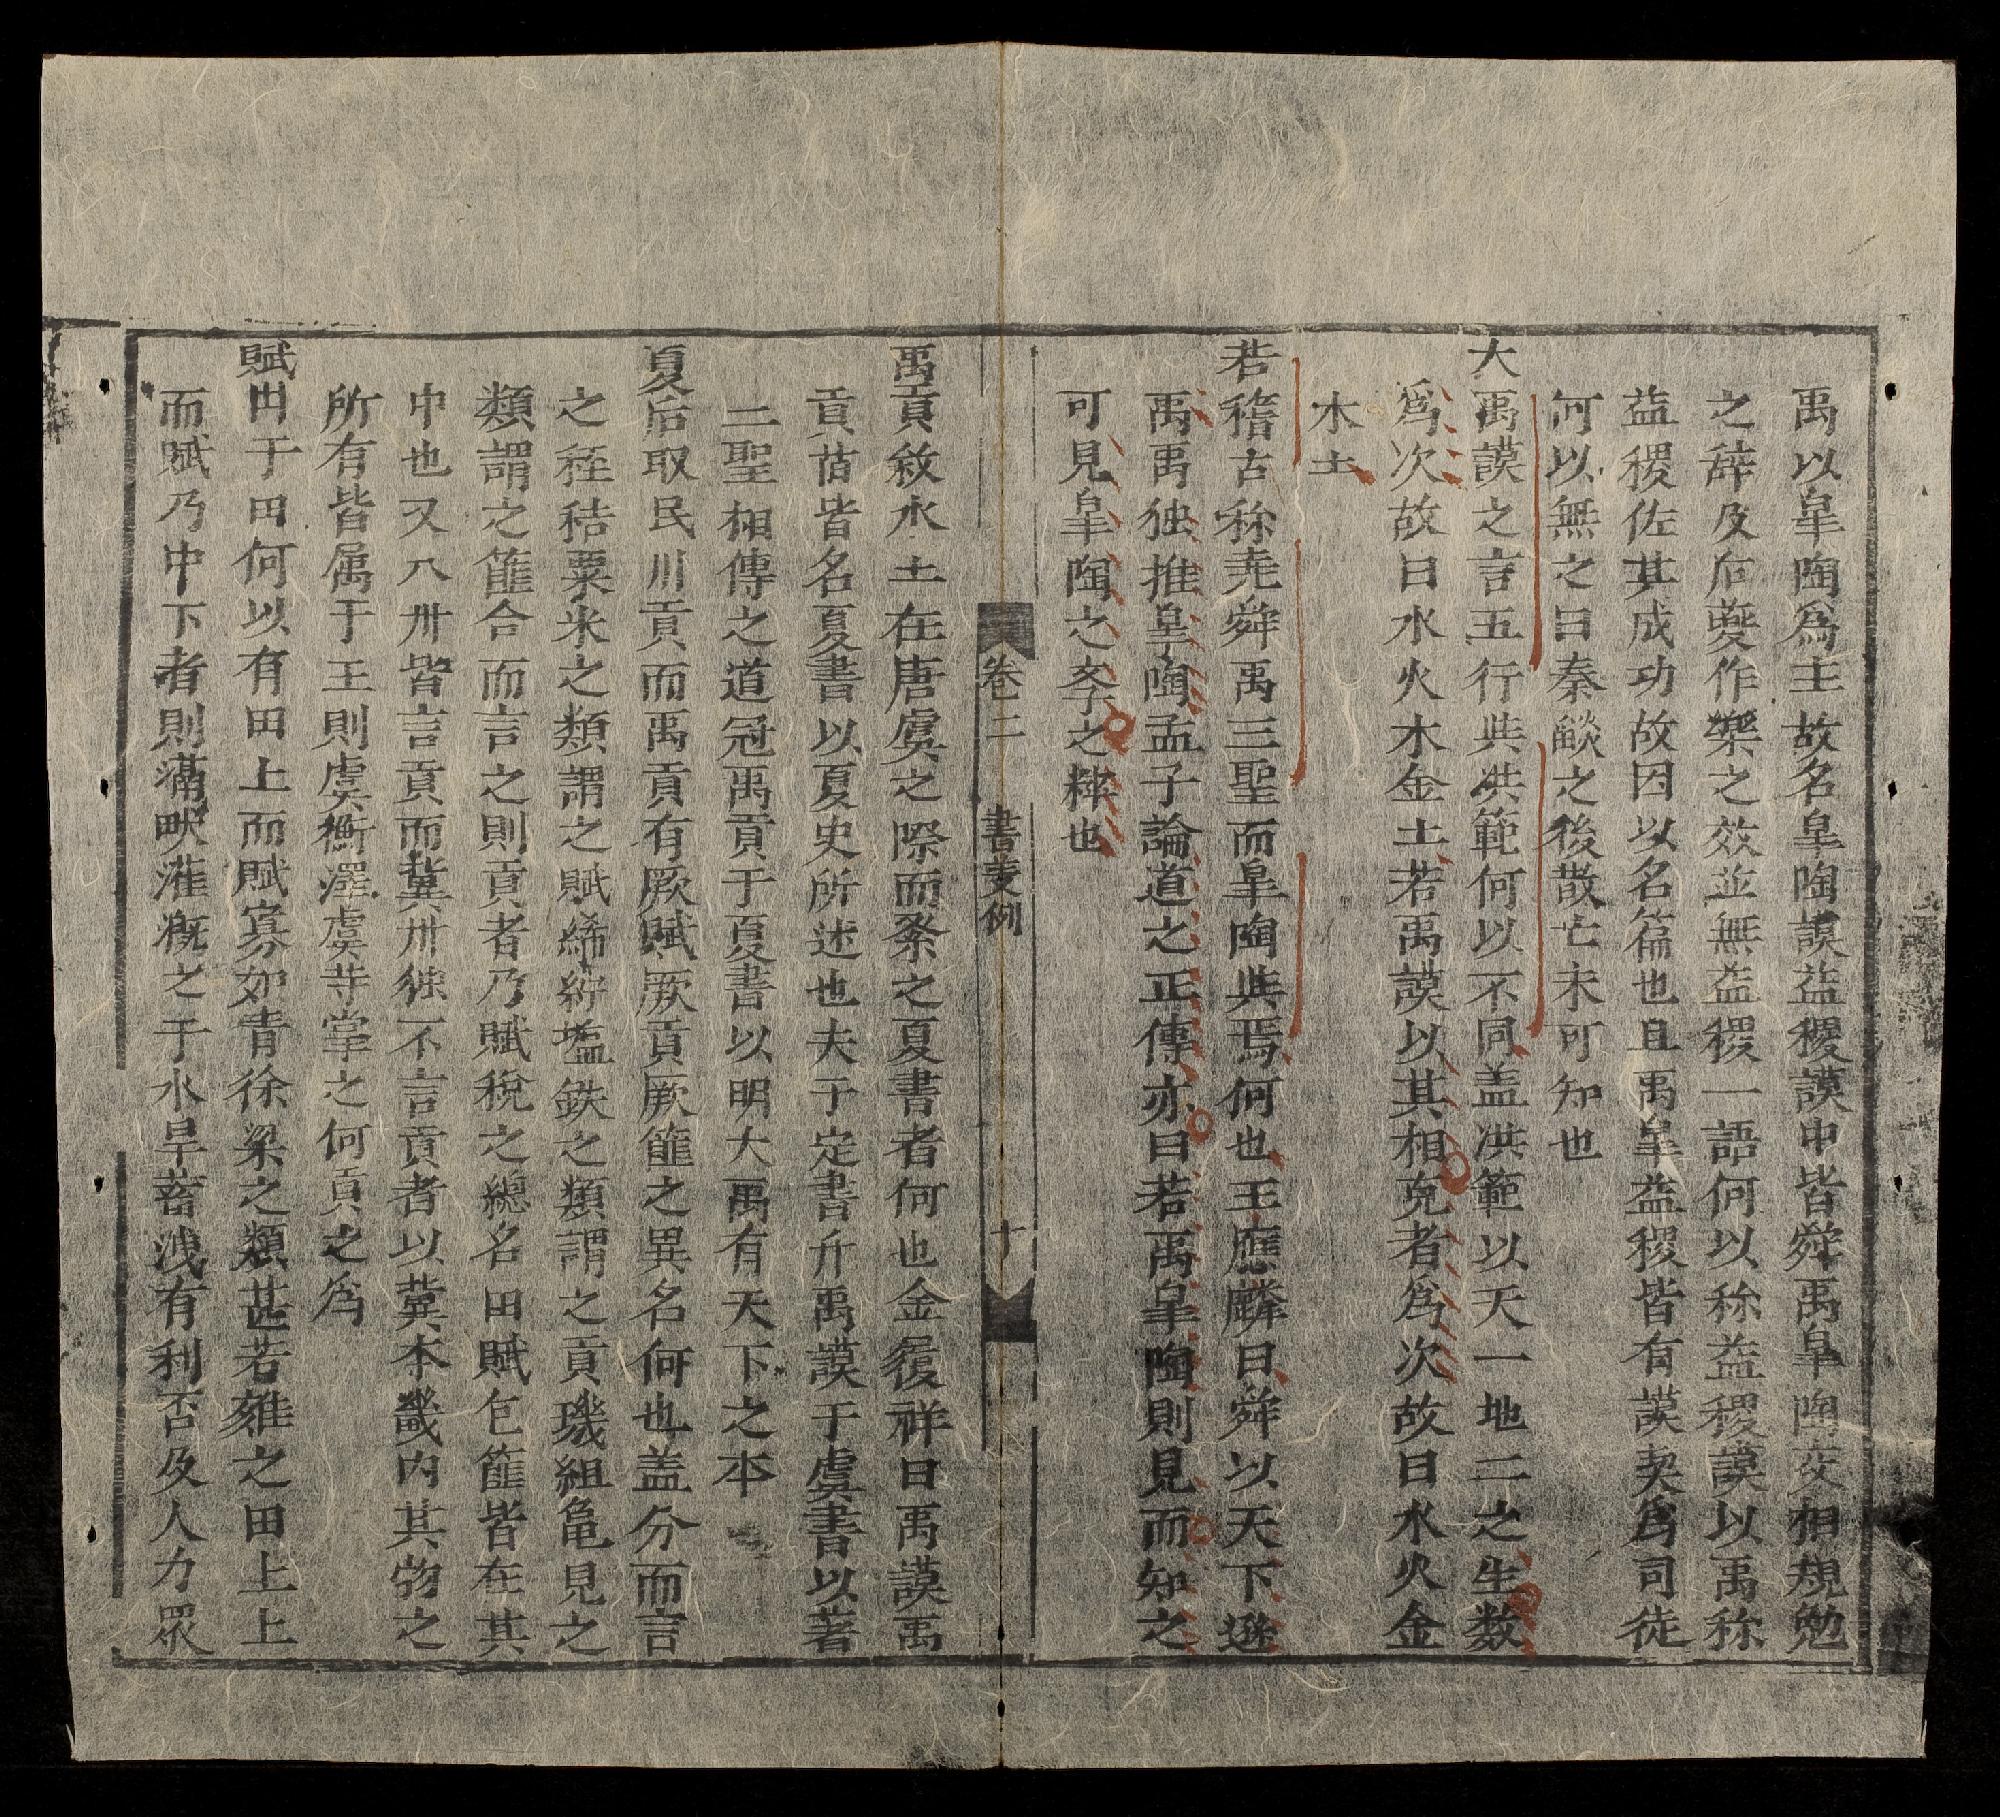 禹以皐陶爲主故名皐陶謨益稷謨中皆舜禹皐陶交相規勉
之辞及后夔作樂之效並無益稷一語何以称益稷謨以禹称
益稷佐其成功故因以名篇也且禹皐益稷皆有謨契爲司徒
何以無之曰秦燄之後散亡未可知也
大禹謨之言五行与洪範何以不同盖洪範以天一地二之生数
爲次故曰水火木金土若禹謨以其相克者爲次故曰水火金
木土
若稽古称堯舜禹三聖而皐陶与焉何也王應麟曰舜以天下遜
禹禹独推皐陶孟子論道之正傳亦曰若禹皐陶則見而知之
可見皐陶之孝之粹也
卷二　書麦例　十
禹貢敘水土在唐虞之際而係之夏書者何也金履祥曰禹謨禹
貢古皆名夏書以夏史所述也夫子定書升禹謨于虞書以著
二聖相傳之道冠禹貢于夏書以明大禹有天下之本
夏后取民用貢而禹貢有厥賦厥貢厥篚之異名何也盖分而言
之秷秸粟米之類謂之賦絺紵塩鉄之類謂之貢璣組龟見之
類謂之篚合而言之則貢者乃賦稅之總名田賦包篚皆在其
中也又八州皆言貢而冀州独不言貢者以冀本畿內其物之
所有皆属于王則虞衡澤虞寺掌之何貢之爲
賦由于田何以有田上而賦寡如青徐梁之類甚若雍之田上上
而賦乃中下者則溝畎灌漑之于水旱蓄洩有利否及人力眾